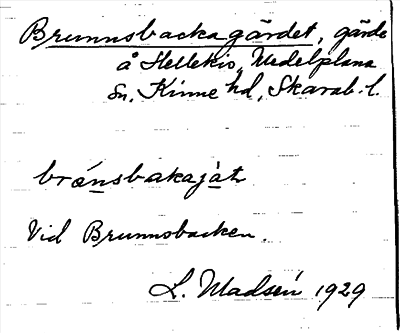 Brunnsbackagärdet, gärde
å Hellekis, Medelplana
sn, Kinne hd, Skarab. l.
brǿnsbakaja̱t
Vid Brunnsbacken.
L. Madsén 1929